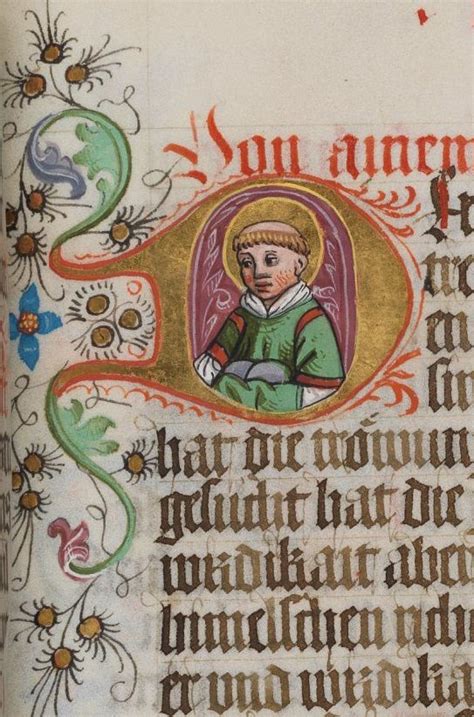 Von ainem
tre
en
sin
hat die tröwun
gesucht hat die
wirdikait aber
himelschen rich
er vnd wirdika